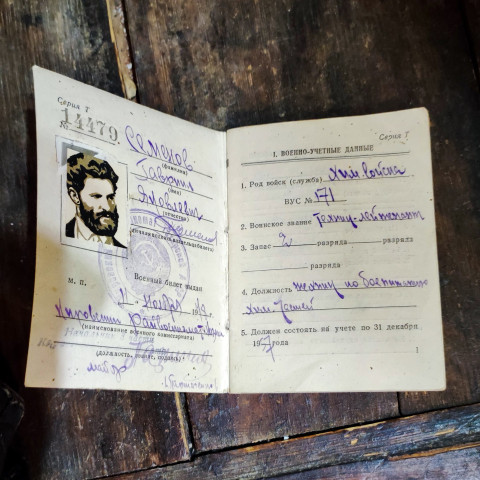 Серия Т
№ 14479
Семенов
(фамилия)
Гавриил
(имя)
Яковлевич
(отчество)
(личная подпись владельца билета)
Военный билет выдан
М. П.
ноября
Райвоенкоматом
(наименование военного комиссариата)
(должность, звание, подпись)
майор
Серия Т
I. ВОЕННО-УЧЕТНЫЕ ДАННЫЕ
1. Род войск (служба) Химвойска
ВУС № 171
2. Воинское звание техник-лейтенант
3. Запас 2 разряда разряда
разряда
4. Должность техник по боеприпасам
хим. частей
5. Должен состоять на учете по 31 декабря
19 7 года
1